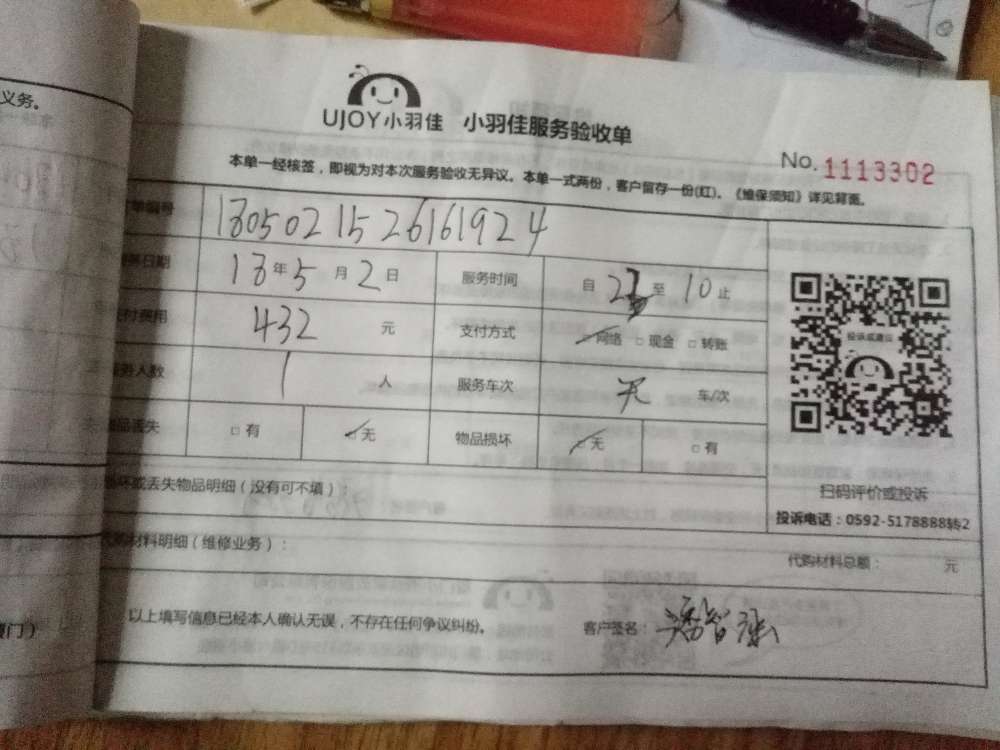 义务。
UJOY小羽佳 小羽佳服务验收单
No. 1113302
本单一经核签，即视为对本次服务验收无异议。本单一式两份，客户留存一份(红)。《维保须知》详见背面。
单编号 1805021526161924
务日期 18年5月2日 服务时间 自 至 10止
付费用 432 元 支付方式 ☑网络 □现金 □转账
务人数 1 人 服务车次 无 车/次
物品丢失 □有 ☑无 物品损坏 ☑无 □有
投诉或建议
扫码评价或投诉
投诉电话：0592-5178888转2
坏或丢失物品明细（没有可不填）：
材料明细（维修业务）：
代购材料总额： 元
以上填写信息已经本人确认无误，不存在任何争议纠纷。
客户签名：潘智强
厦门）